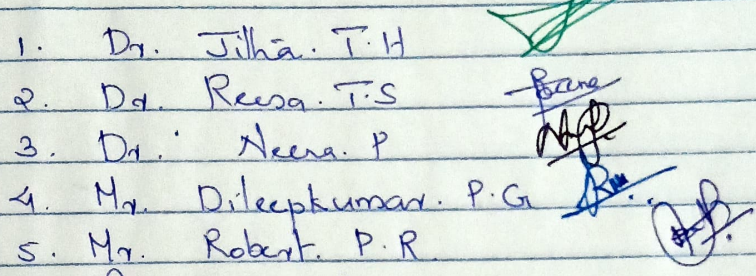 1. Dr. Jilha. T.H
2. Dr. Reesa. T.S
3. Dr. Neena. P
4. Mr. Dileepkumar. P.G
5. Mr. Robert. P.R